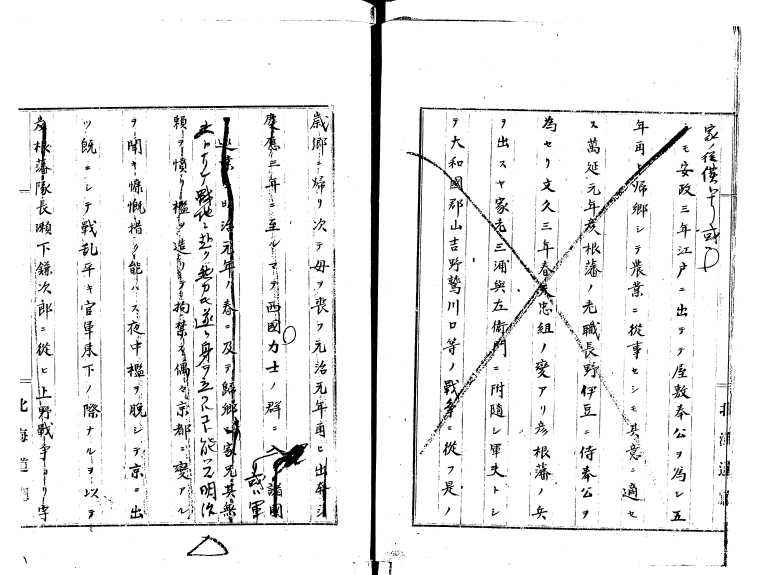 家ノ従僕
シモ安政三年江戸ニ出テテ屋敷奉公ヲ為シ五
年再ヒ帰郷シテ農業ニ従事セシモ其意ニ適セ
ス萬延元年彦根藩ノ老職長野伊豆ニ侍奉公ヲ
為セリ文久三年春天忠組ノ変アリ彦根藩ノ兵
ヲ出スヤ家老三浦與左衛門ニ附随シ軍夫トシ
テ大和國郡山吉野鷲川口等ノ戦争ニ從フ是ノ
歳郷ニ帰リ次テ母ヲ喪フ元治元年再ヒ出奔シ
慶應三年ニ至ルマテ西國力士ノ群ニ 諸國
或ハ軍
明治元年ノ春ニ及テ歸郷 家兄其無
戦地ニ赴リ 遂ニ身ヲ立 能ハス明次
頼ヲ憤リ檻ヲ造リテ拘禁ス偶々京都ニ変アル
ヲ聞キ慷慨措ク能ハス夜中檻ヲ脱シテ京ニ出
ツ既ニシテ戦乱平キ官軍東下ノ際ナルヲ以テ
彦根藩隊長瀬下鎌次郎ニ從ヒ上野戦争ヨリ宇
北海道廳